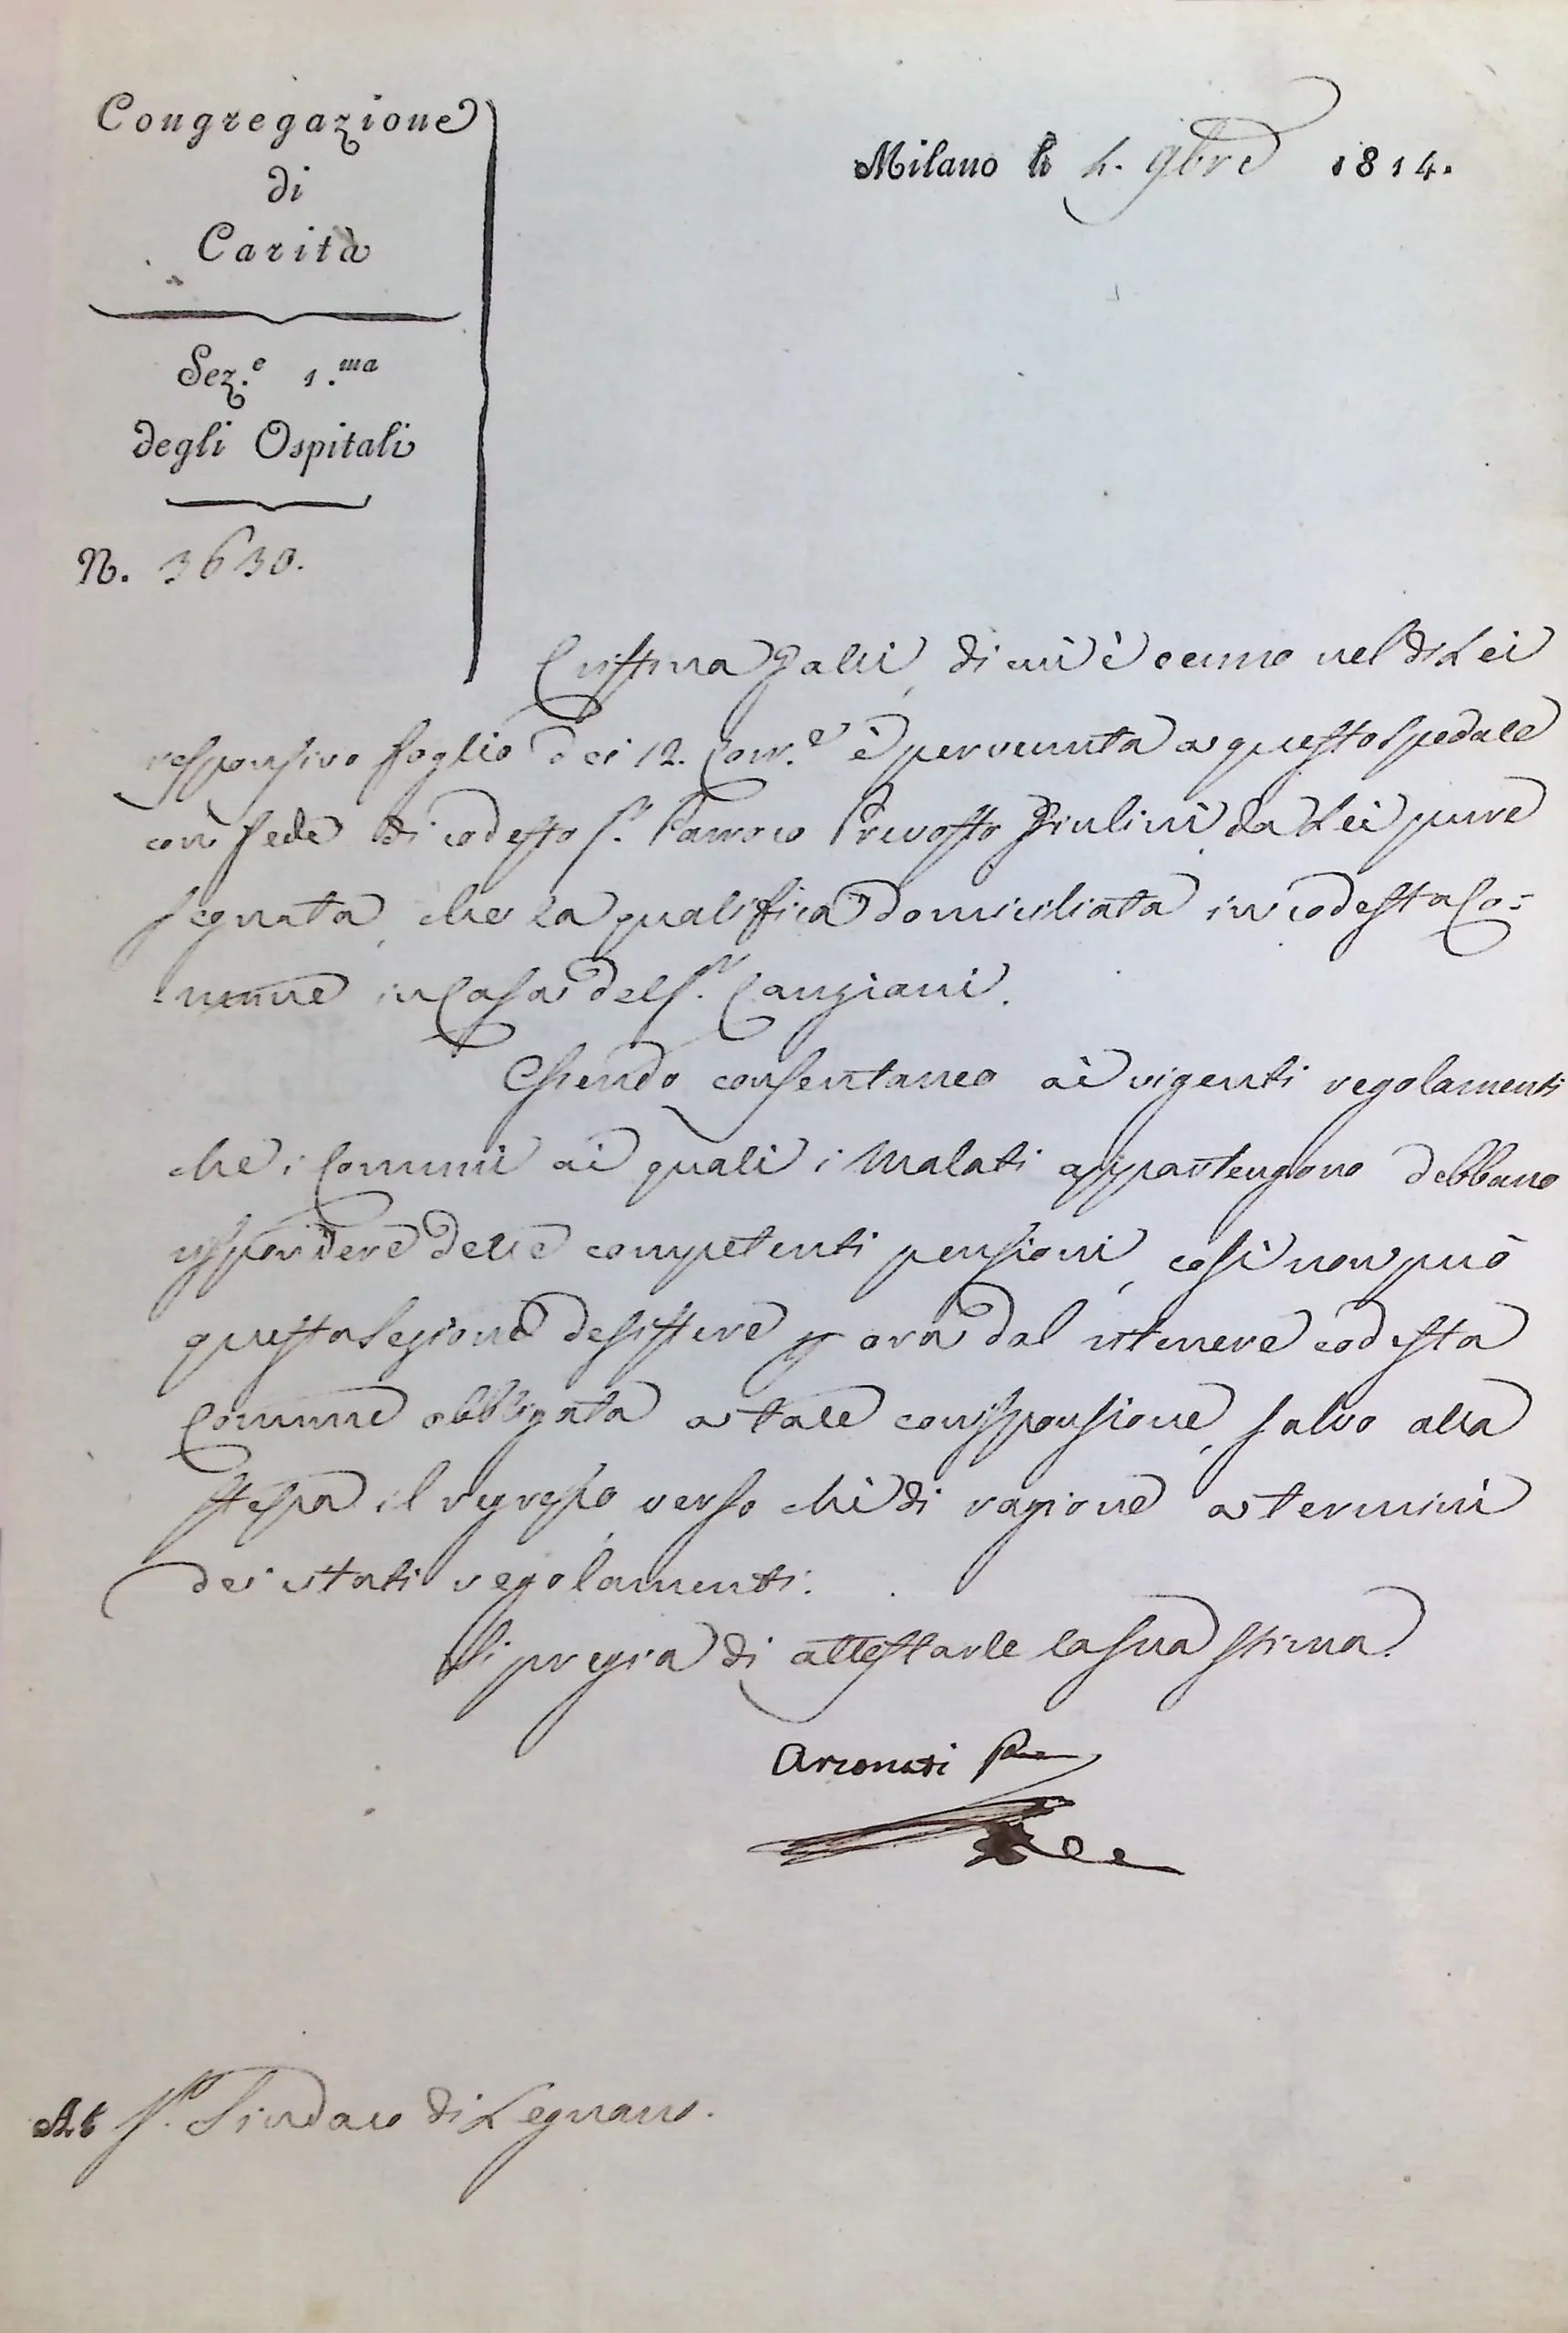 Congregazione
di
Carità
Sez.e 1.ma
degli Ospitali
N. 3630.
Milano li 4. 9bre 1814.
Cristina Galli, di cui è cenno nel di Lei
responsivo foglio dei 12. Corr.e è pervenuta a questo Spedale
con fede di codesto S.r Parroco Prevosto Giulini da Lei pure
segnata, che la qualifica domiciliata in codesta Co=
=mune in Casa del S.r Canziani.
Essendo consentaneo ai vigenti regolamenti
che i Comuni ai quali i Malati appartengono debbano
rispondere delle competenti pensioni, così non può
questa Sezione desistere p ora dal ritenere codesta
Comune obbligata a tale corrisponsione, salvo alla
stessa il regresso verso chi di ragione a termini
dei citati regolamenti.
Si pregia di attestarle la sua stima.
Arconati
Al S.r Sindaco di Legnano.